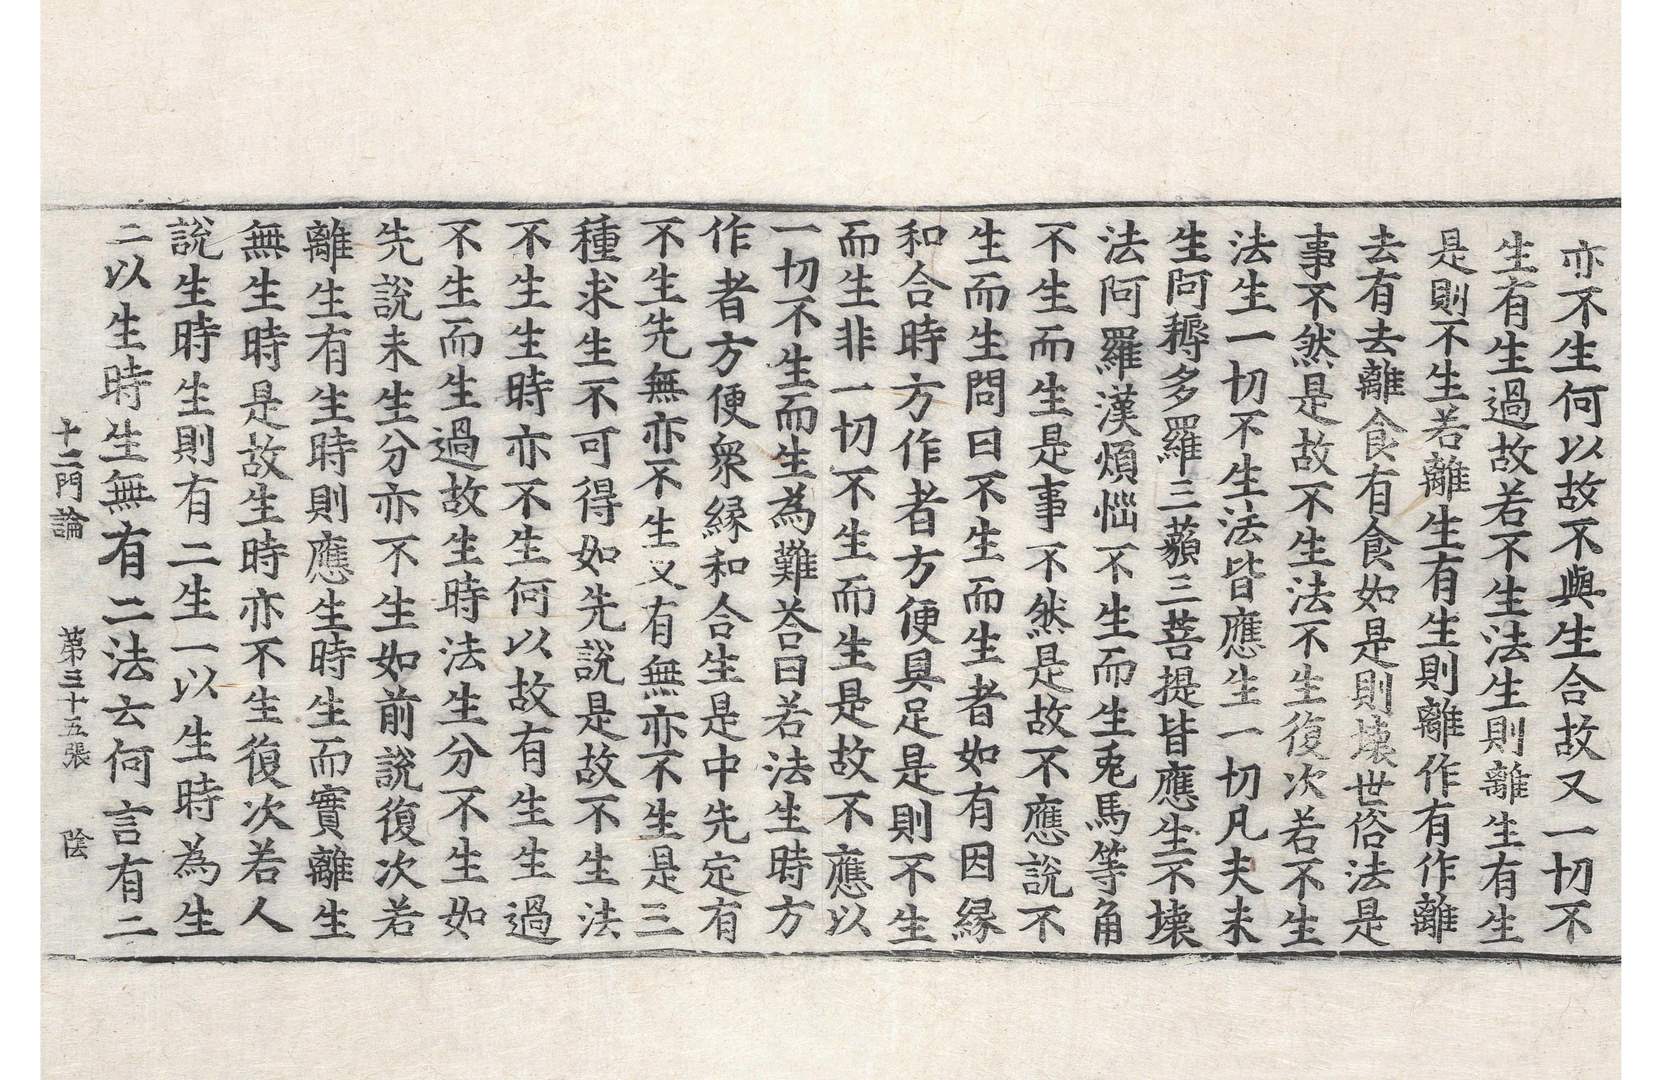 亦不生何以故不與生合故又一切不
生有生過故若不生法生則離生有生
是則不生若離生有生則離作有作離
去有去離食有食如是則壞世俗法是
事不然是故不生法不生復次若不生
法生一切不生法皆應生一切凡夫未
生阿耨多羅三藐三菩提皆應生不壞
法阿羅漢煩惱不生而生兎馬等角
不生而生是事不然是故不應說不
生而生問曰不生而生者如有因緣
和合時方作者方便具足是則不生
而生非一切不生而生是故不應以
一切不生而生為難荅曰若法生時方
作者方便衆緣和合生是中先定有
不生先無亦不生又有無亦不生是三
種求生不可得如先說是故不生法
不生生時亦不生何以故有生生過
不生而生過故生時法生分不生如
先說未生分亦不生如前說復次若
離生有生時則應生時生而實離生
無生時是故生時亦不生復次若人
說生時生則有二生一以生時為生
二以生時生無有二法云何言有二
十二門論 第三十五張 陰